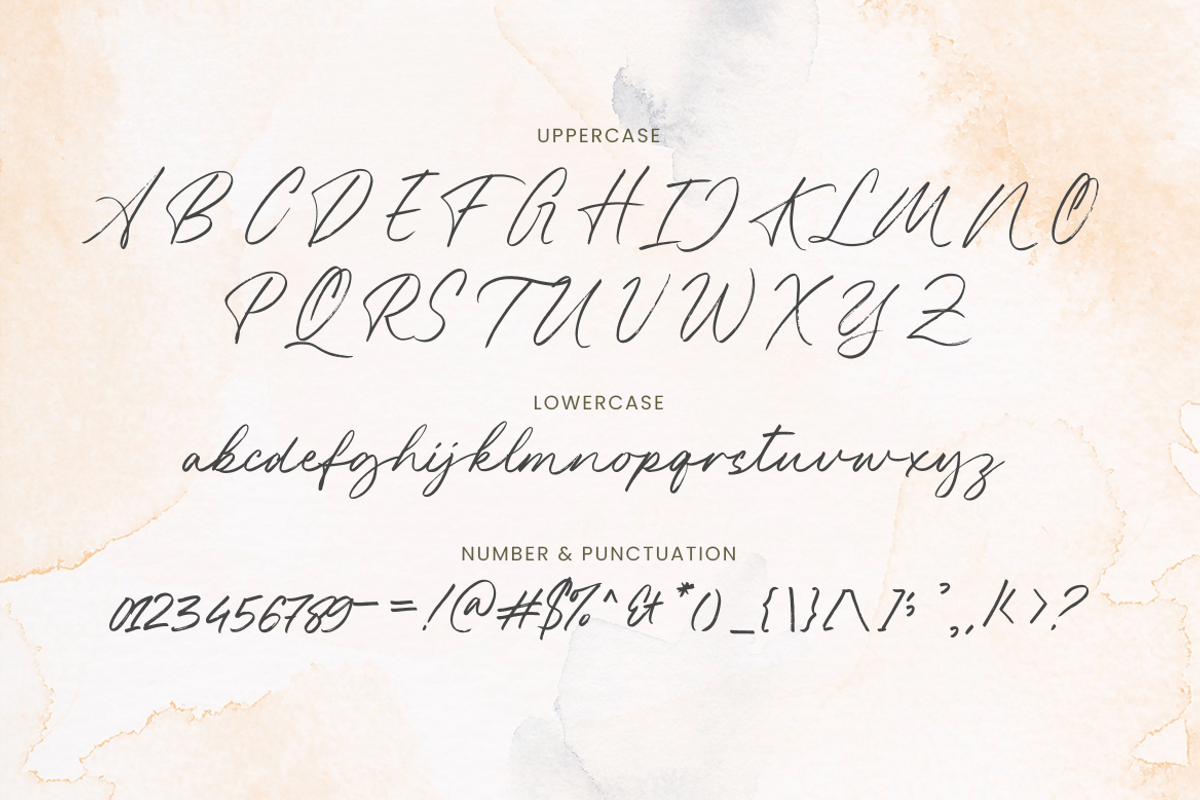 UPPERCASE
A B C D E F G H I J K L M N O
P Q R S T U V W X Y Z
LOWERCASE
abcdefghijklmnopqrstuvwxyz
NUMBER & PUNCTUATION
0123456789-=!@#$%^&*()_{|}[\];',./<>?